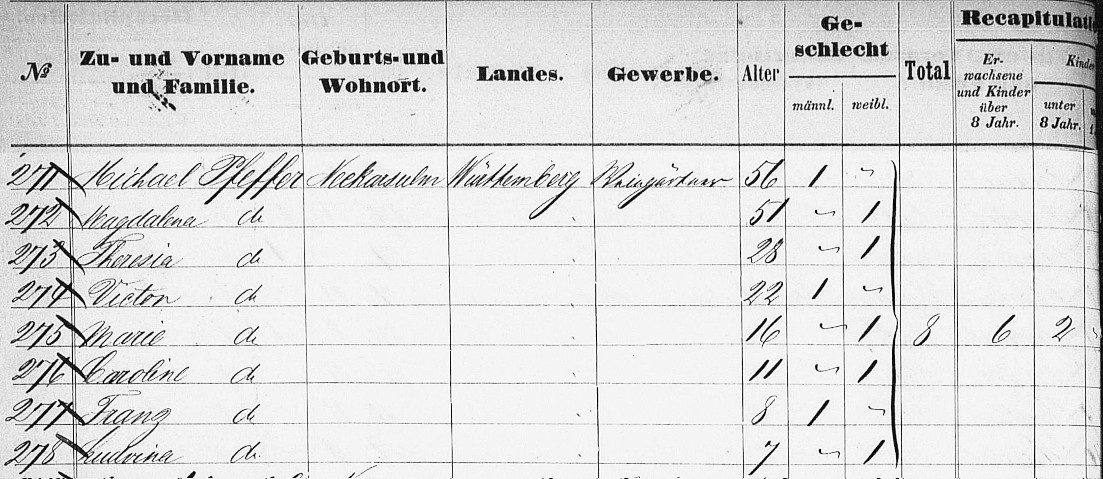 № Zu- und Vorname und Familie. Geburts- und Wohnort. Landes. Gewerbe. Alter Geschlecht männl. weibl. Total Recapitulati Erwachsene und Kinder über 8 Jahr. Kinder unter 8 Jahr.
271 Michael Pfeffer Neckarsulm Württemberg Weingärtner 56 1 "
272 Magdalena do 51 " 1
273 Theresia do 28 " 1
274 Victor do 22 1 "
275 Marie do 16 " 1 8 6 2 "
276 Caroline do 11 " 1
277 Franz do 8 1 "
278 Ludvina do 7 " 1